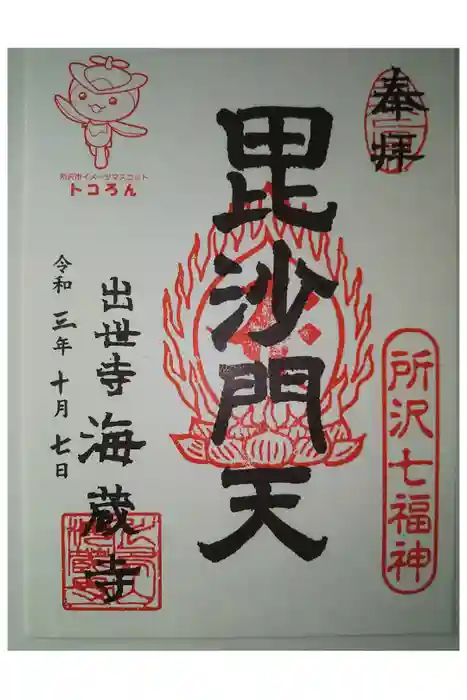 奉拝
所沢七福神
毘沙門天
出世寺 海蔵寺
令和 三年 十月 七日
所沢市イメージマスコット
トコろん